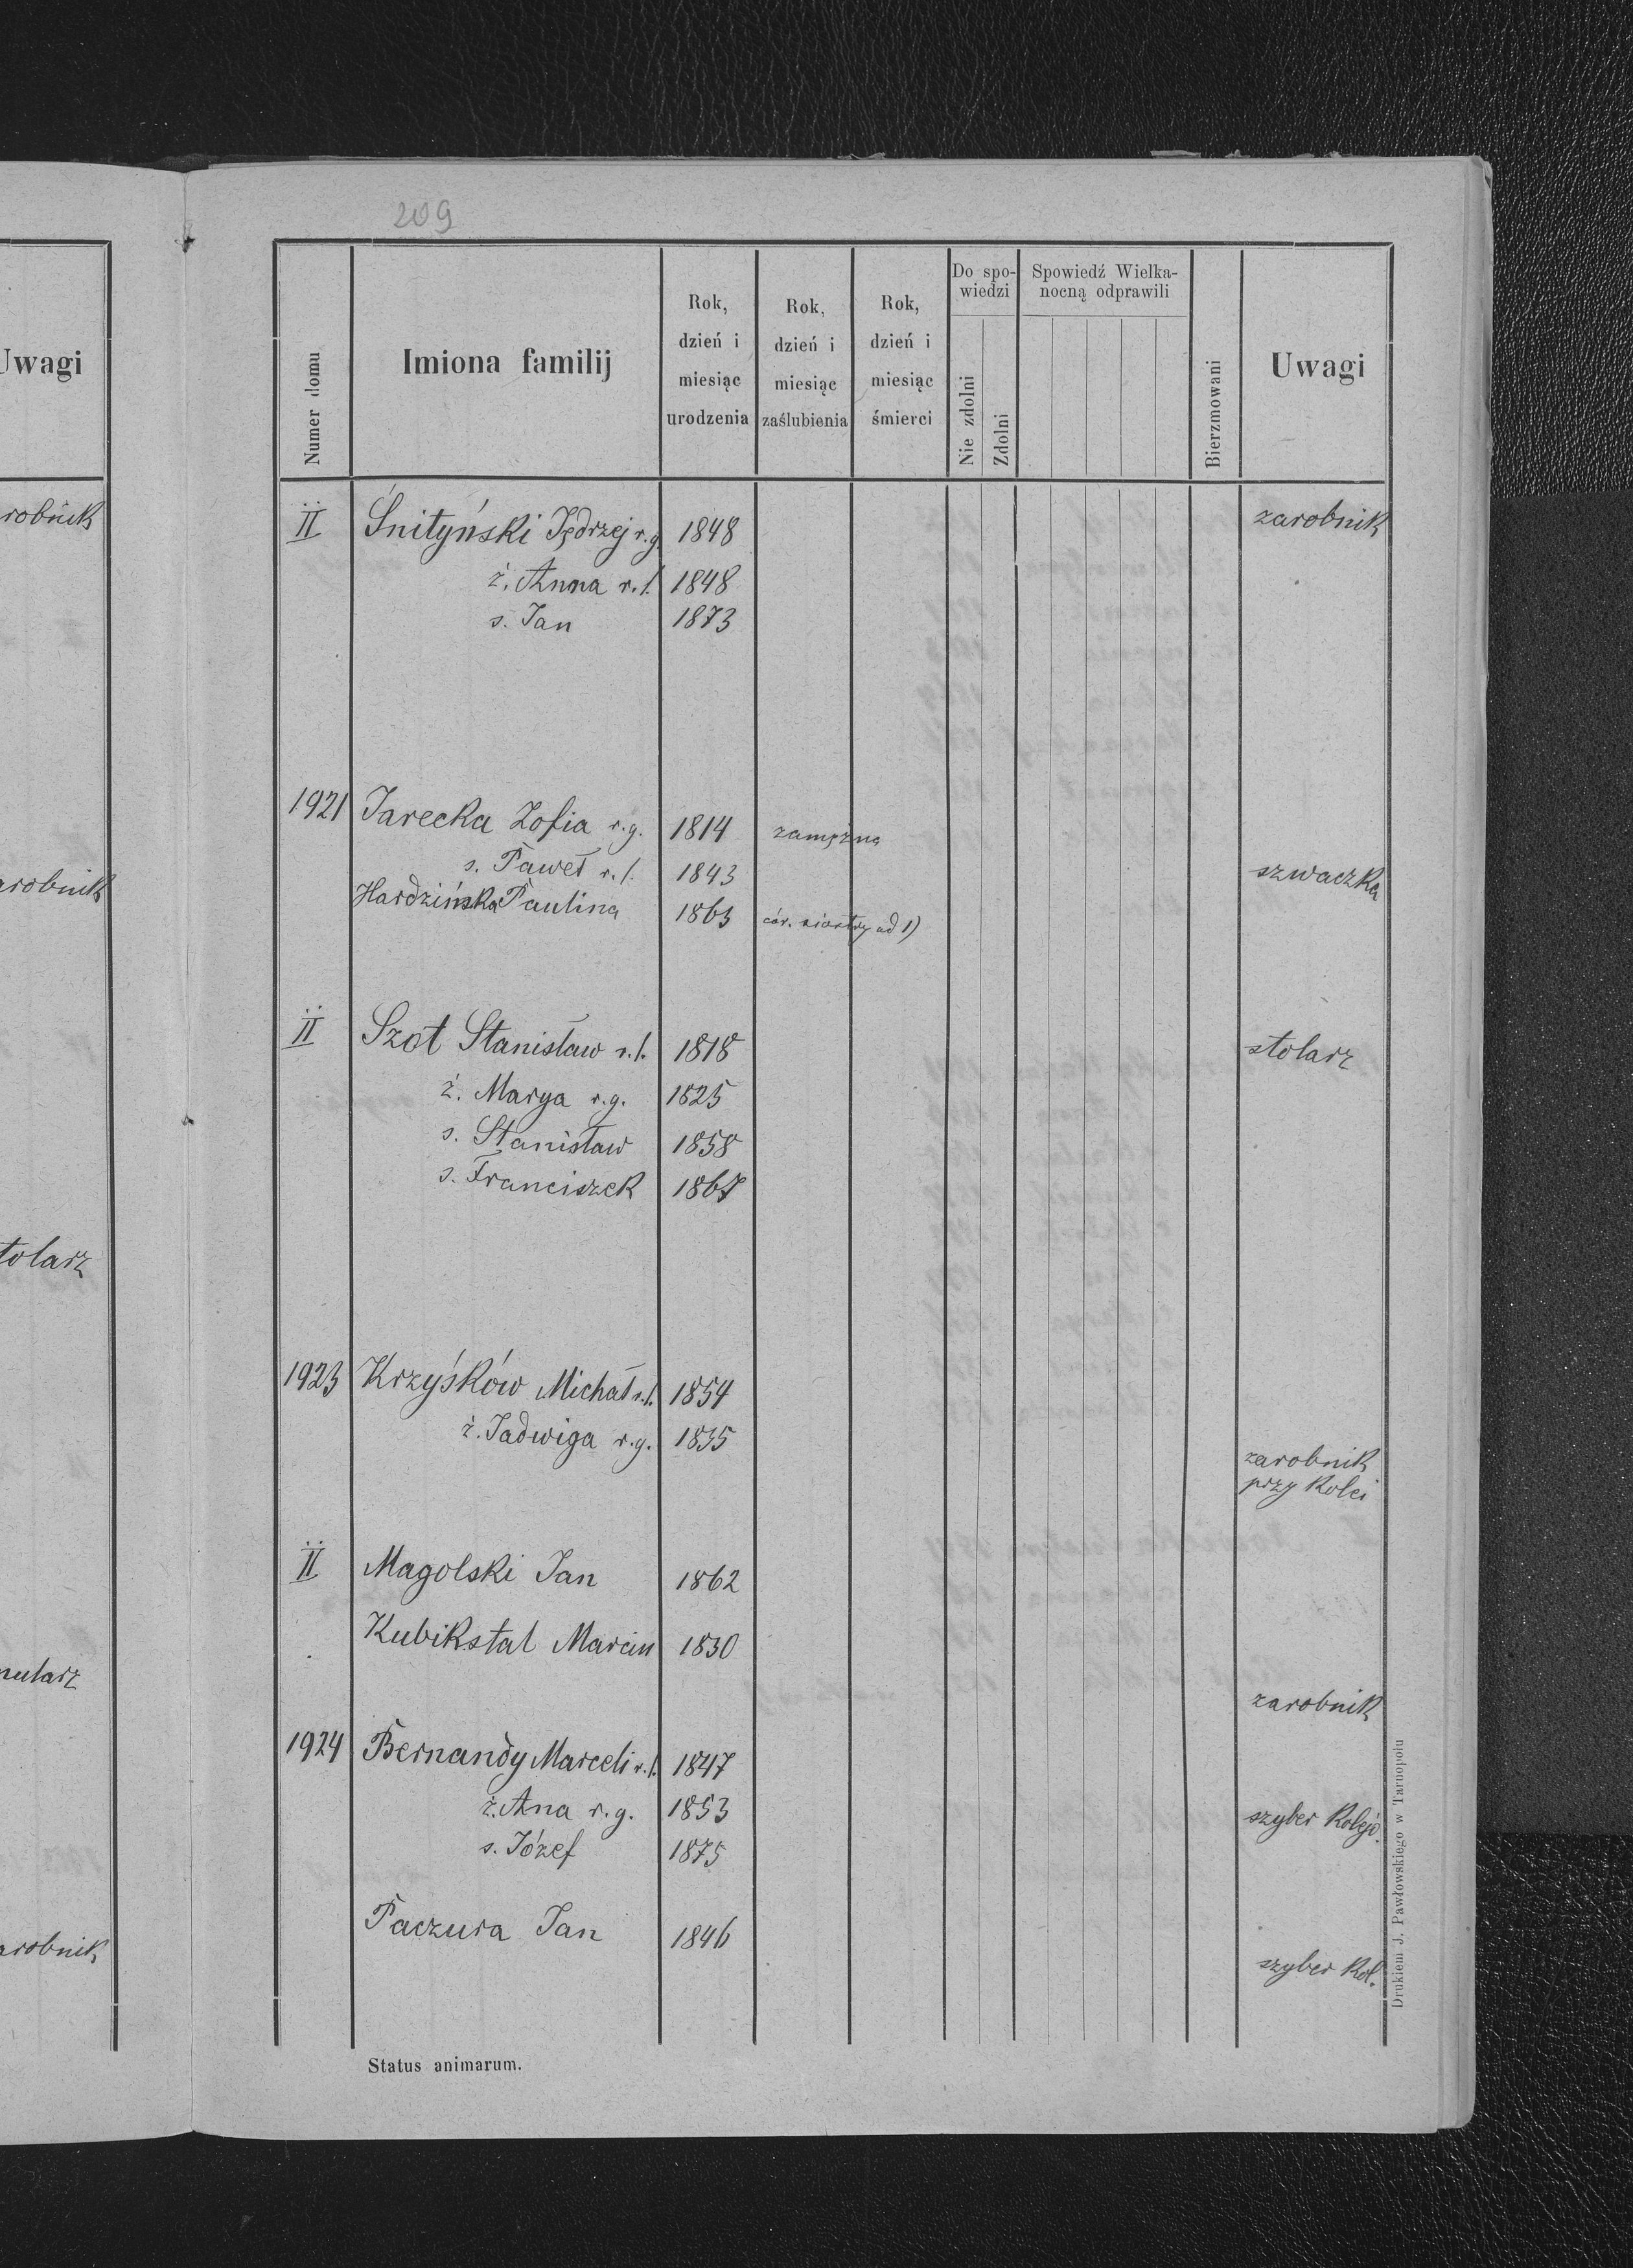 209
Uwagi
robnik
arobnik
tolarz
mularz
arobnik
Numer domu
Imiona familij
Rok, dzień i miesiąc urodzenia
Rok, dzień i miesiąc zaślubienia
Rok, dzień i miesiąc śmierci
Do spo-wiedzi
Nie zdolni
Zdolni
Spowiedź Wielka-nocną odprawili
Bierzmowani
Uwagi
II Śnityński Jędrzej r.g. 1848 zarobnik
ż. Anna r.l. 1848
s. Jan 1873
1921 Jarecka Zofia r.g. 1814 zamężna
s. Paweł r.l. 1843 szwaczka
Hardzińska Paulina 1863 cór. siostry ad 1)
II Szot Stanisław r.l. 1818 stolarz
ż. Marya r.g. 1825
s. Stanisław 1858
s. Franciszek 1867
1923 Krzyśków Michał r.l. 1854
ż. Jadwiga r.g. 1835
zarobnik
przy Kolei
II Magolski Jan 1862
Kubikstal Marcin 1830
zarobnik
1924 Bernandy Marceli r.l. 1847
ż. Ana r.g. 1853 szyber Kolejo.
s. Józef 1875
Paczura Jan 1846
szyber Kol.
Status animarum.
Drukiem J. Pawłowskiego w Tarnopolu